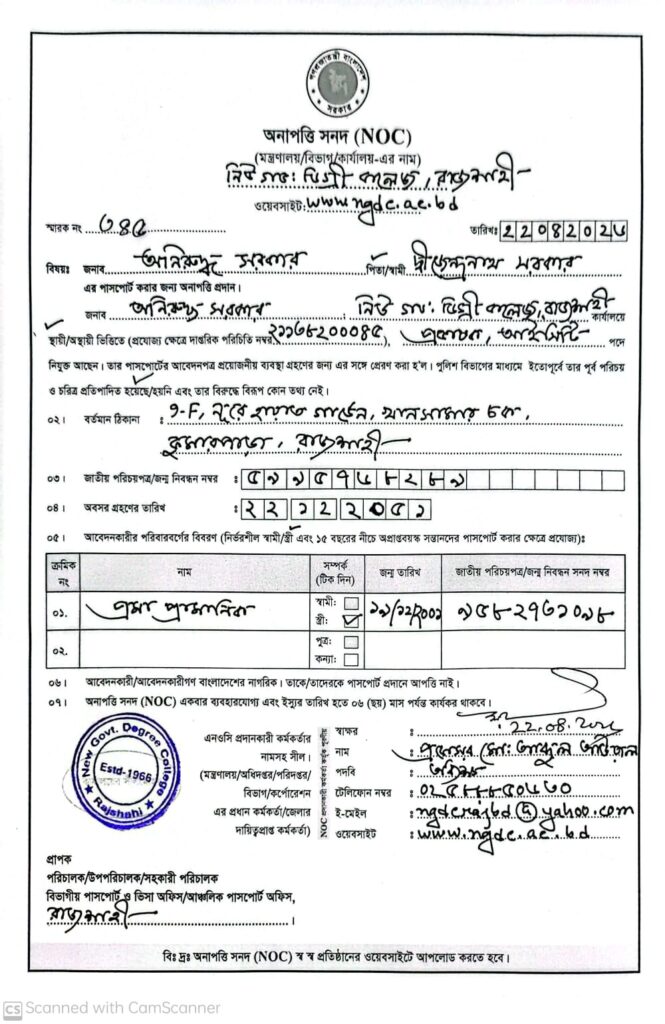 গণপ্রজাতন্ত্রী বাংলাদেশ
সরকার
অনাপত্তি সনদ (NOC)
(মন্ত্রণালয়/বিভাগ/কার্যালয়-এর নাম)
নিউ গভ: ডিগ্রী কলেজ, রাজশাহী
ওয়েবসাইট: www.ngdc.ac.bd
স্মারক নং ৩৪৫
তারিখ: 22082026
বিষয়ঃ জনাব অনিরুদ্ধ সরকার পিতা/স্বামী দ্বীজেন্দ্রনাথ সরকার
এর পাসপোর্ট করার জন্য অনাপত্তি প্রদান।
জনাব অনিরুদ্ধ সরকার নিউ গভ: ডিগ্রী কলেজ, রাজশাহী কার্যালয়ে
স্থায়ী/অস্থায়ী ভিত্তিতে (প্রযোজ্য ক্ষেত্রে দাপ্তরিক পরিচিতি নম্বর প্রভাষক, আইসিটি পদে
নিযুক্ত আছেন। তার পাসপোর্টের আবেদনপত্র প্রয়োজনীয় ব্যবস্থা গ্রহণের জন্য এর সঙ্গে প্রেরণ করা হ'ল। পুলিশ বিভাগের মাধ্যমে ইতোপূর্বে তার পূর্ব পরিচয়
ও চরিত্র প্রতিপাদিত হয়েছে/হয়নি এবং তার বিরুদ্ধে বিরূপ কোন তথ্য নেই।
০২। বর্তমান ঠিকানা : ৭-F, নূরে হায়াত গার্ডেন, খানসামার চক,
কুমারপাড়া, রাজশাহী
০৩। জাতীয় পরিচয়পত্র/জন্ম নিবন্ধন নম্বর : ৫৯৯৫৭৬৮২৮৯
০৪। অবসর গ্রহণের তারিখ : ২২১২২০৫১
০৫। আবেদনকারীর পরিবারবর্গের বিবরণ (নির্ভরশীল স্বামী/স্ত্রী এবং ১৫ বছরের নীচে অপ্রাপ্তবয়স্ক সন্তানদের পাসপোর্ট করার ক্ষেত্রে প্রযোজ্য):
ক্রমিক নং নাম সম্পর্ক (টিক দিন) জন্ম তারিখ জাতীয় পরিচয়পত্র/জন্ম নিবন্ধন সনদ নম্বর
০১. প্রামানিক স্বামী: স্ত্রী:
০২. পুত্র: কন্যা:
০৬। আবেদনকারী/আবেদনকারীগণ বাংলাদেশের নাগরিক। তাকে/তাদেরকে পাসপোর্ট প্রদানে আপত্তি নাই।
০৭। অনাপত্তি সনদ (NOC) একবার ব্যবহারযোগ্য এবং ইস্যুর তারিখ হতে ০৬ (ছয়) মাস পর্যন্ত কার্যকর থাকবে।
New Govt. Degree College
Estd-1966
Rajshahi
এনওসি প্রদানকারী কর্মকর্তার
নামসহ সীল।
(মন্ত্রণালয়/অধিদপ্তর/পরিদপ্তর/
বিভাগ/কর্পোরেশন
এর প্রধান কর্মকর্তা/জেলার
দায়িত্বপ্রাপ্ত কর্মকর্তা)
NOC প্রদানকারী কর্মকর্তা কর্তৃক পূরণীয়
স্বাক্ষর :
নাম : প্রফেসর মো:
পদবি : অধ্যক্ষ
টেলিফোন নম্বর :
ই-মেইল : ngdcrajbd@yahoo.com
ওয়েবসাইট : www.ngdc.ac.bd
প্রাপক
পরিচালক/উপপরিচালক/সহকারী পরিচালক
বিভাগীয় পাসপোর্ট ও ভিসা অফিস/আঞ্চলিক পাসপোর্ট অফিস,
রাজশাহী ।
বিঃ দ্রঃ অনাপত্তি সনদ (NOC) স্ব স্ব প্রতিষ্ঠানের ওয়েবসাইটে আপলোড করতে হবে।
CS Scanned with CamScanner